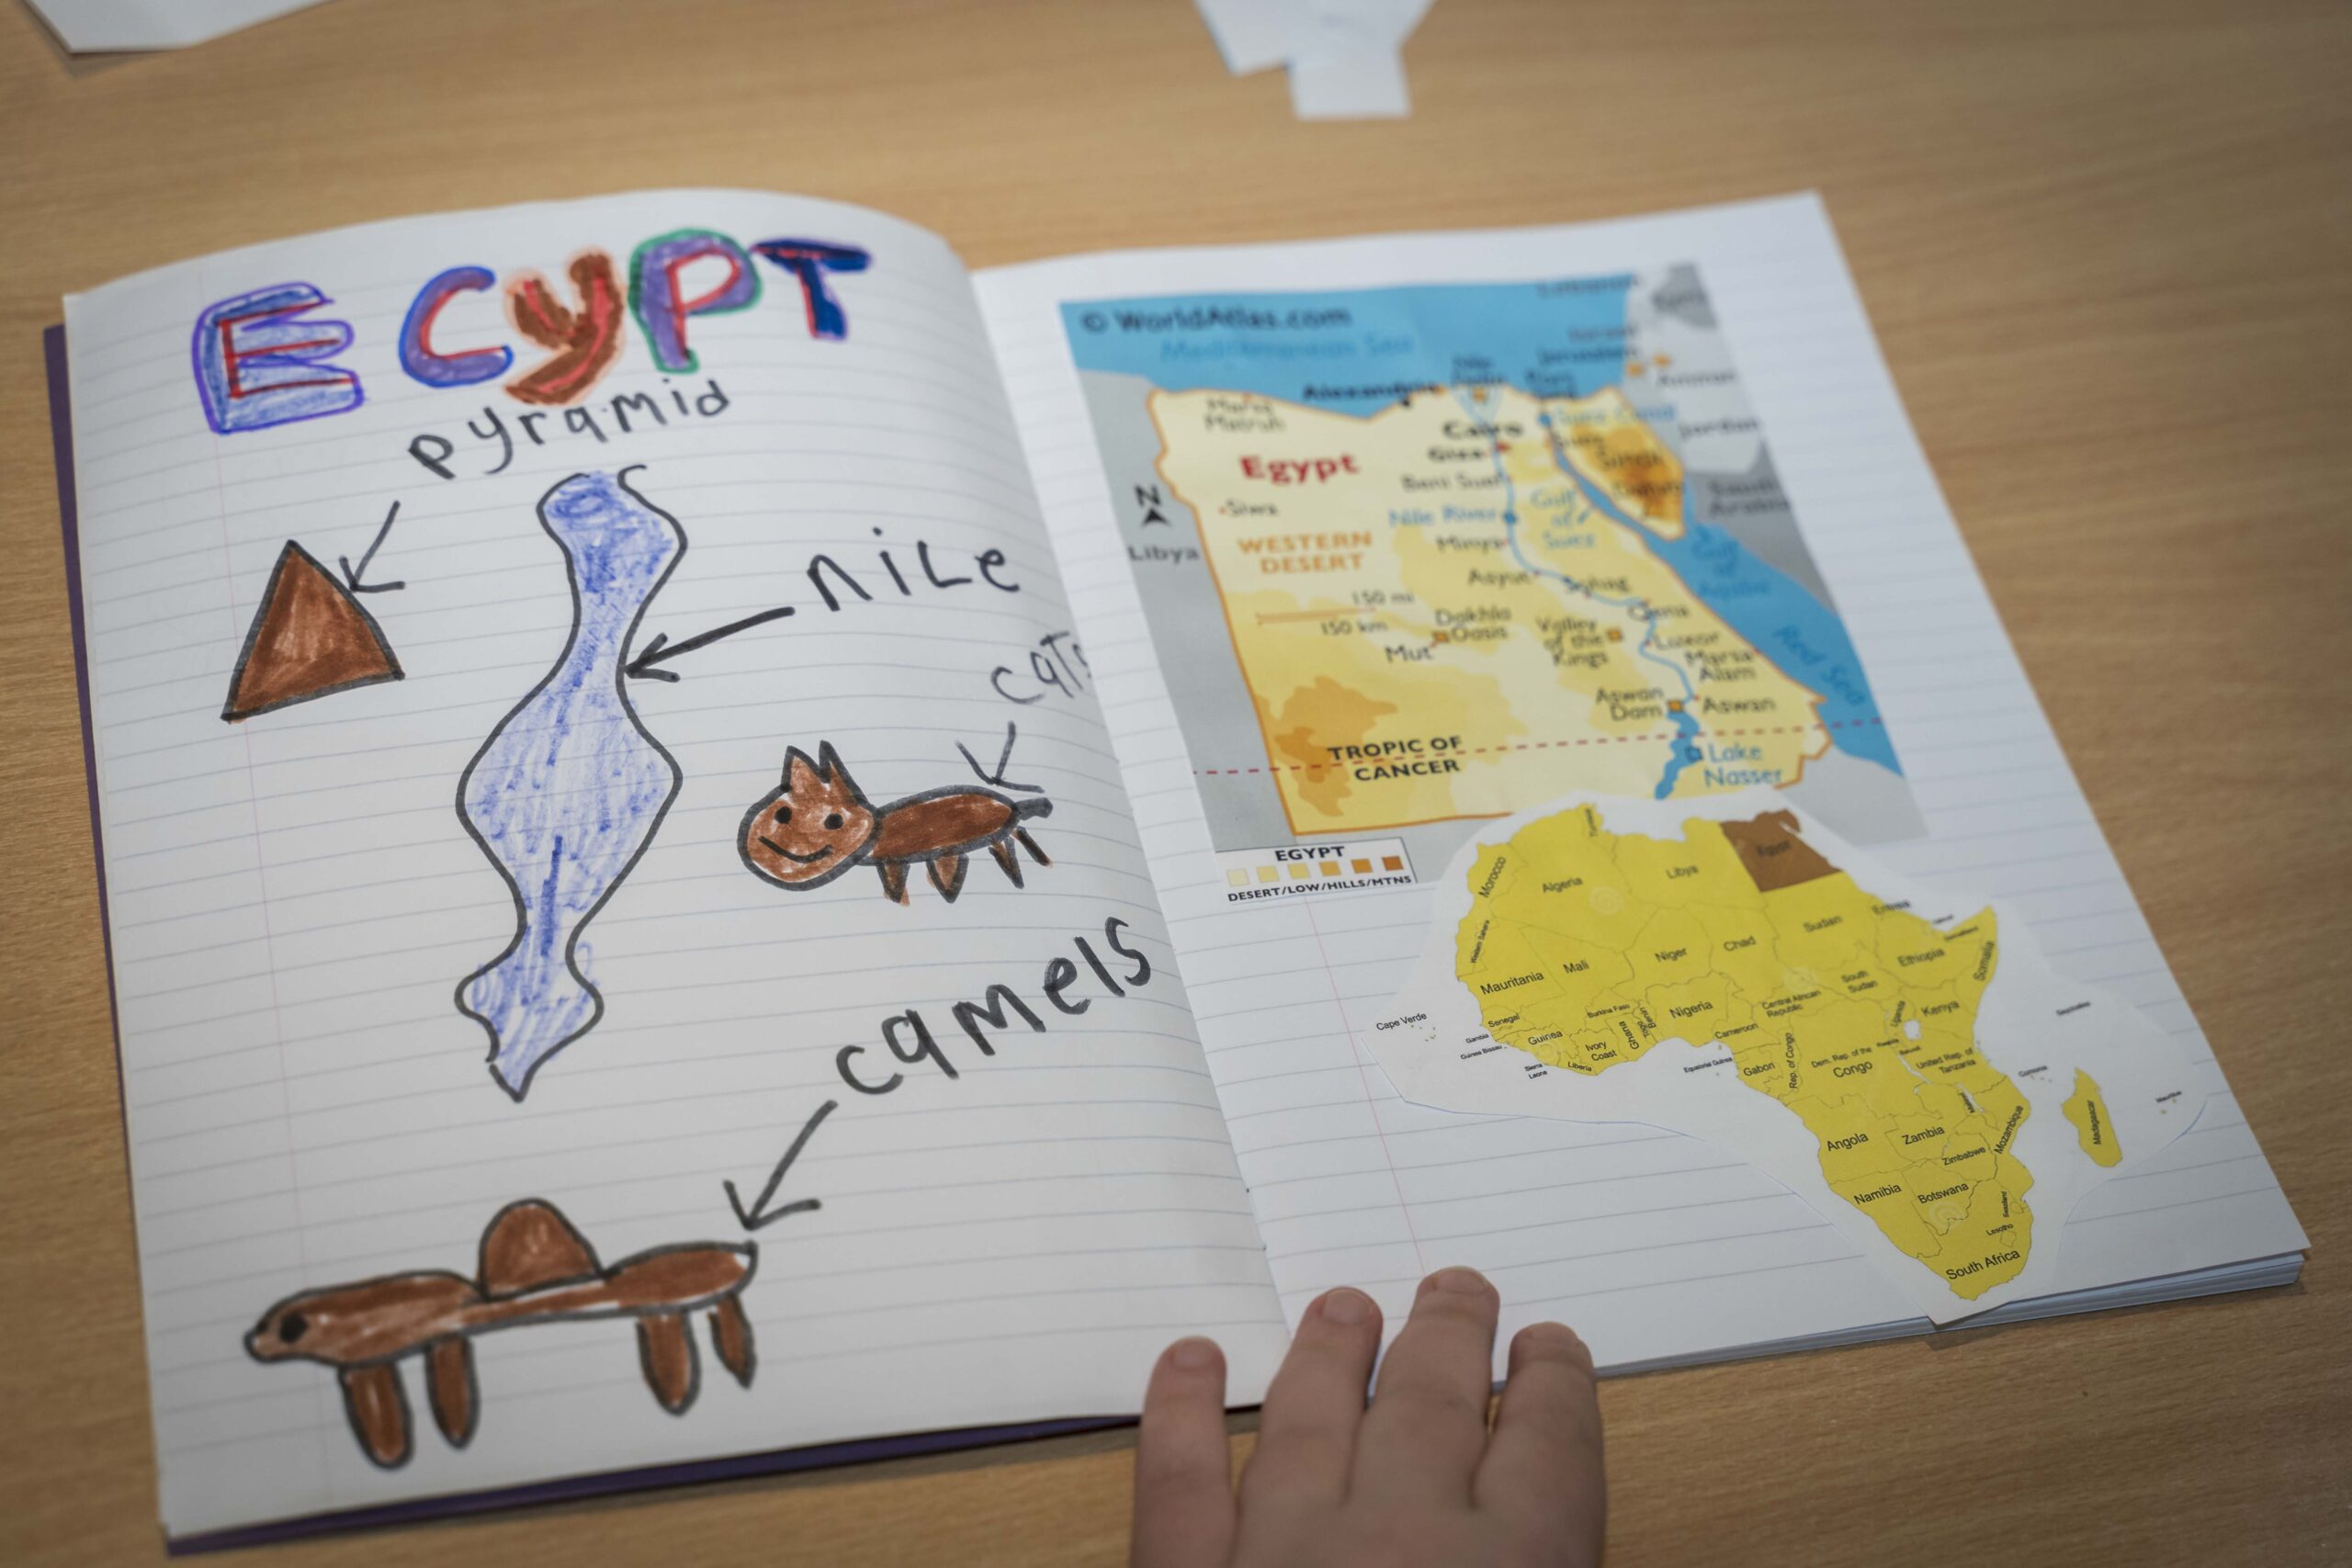 ECYPT
pyramid
nile
cats
camels
© WorldAtlas.com
Mediterranean Sea
Lebanon
Syria
Israel
Jerusalem
Amman
Jordan
Alexandria
Nile
Port
Marsa
Matruh
Suez Canal
Cairo
Giza
Suez
Sinai
Egypt
Beni Suef
Siwa
Saudi
Arabia
N
Nile River
Gulf
of
Suez
Libya
WESTERN
DESERT
Minya
Gulf
of
Aqaba
Asyut
Sohag
150 mi
150 km
Dakhla
Oasis
Mut
Valley
of the
Kings
Qena
Luxor
Marsa
Alam
Red Sea
Aswan
Dam
Aswan
TROPIC OF
CANCER
Lake
Nasser
EGYPT
DESERT/LOW/HILLS/MTNS
Tunisia
Morocco
Algeria
Libya
Egypt
Western Sahara
Mauritania
Mali
Niger
Chad
Sudan
Eritrea
Djibouti
Somaliland
Somalia
Ethiopia
South
Sudan
Cape Verde
Senegal
Gambia
Guinea Bissau
Guinea
Sierra
Leone
Liberia
Ivory
Coast
Burkina Faso
Ghana
Togo
Benin
Nigeria
Cameroon
Central African
Republic
Equatorial Guinea
Gabon
Rep. of Congo
Dem. Rep. of the
Congo
Uganda
Kenya
Rwanda
Burundi
United Rep. of
Tanzania
Seychelles
Comoros
Angola
Zambia
Malawi
Mozambique
Zimbabwe
Namibia
Botswana
Swaziland
Lesotho
South Africa
Madagascar
Mauritius